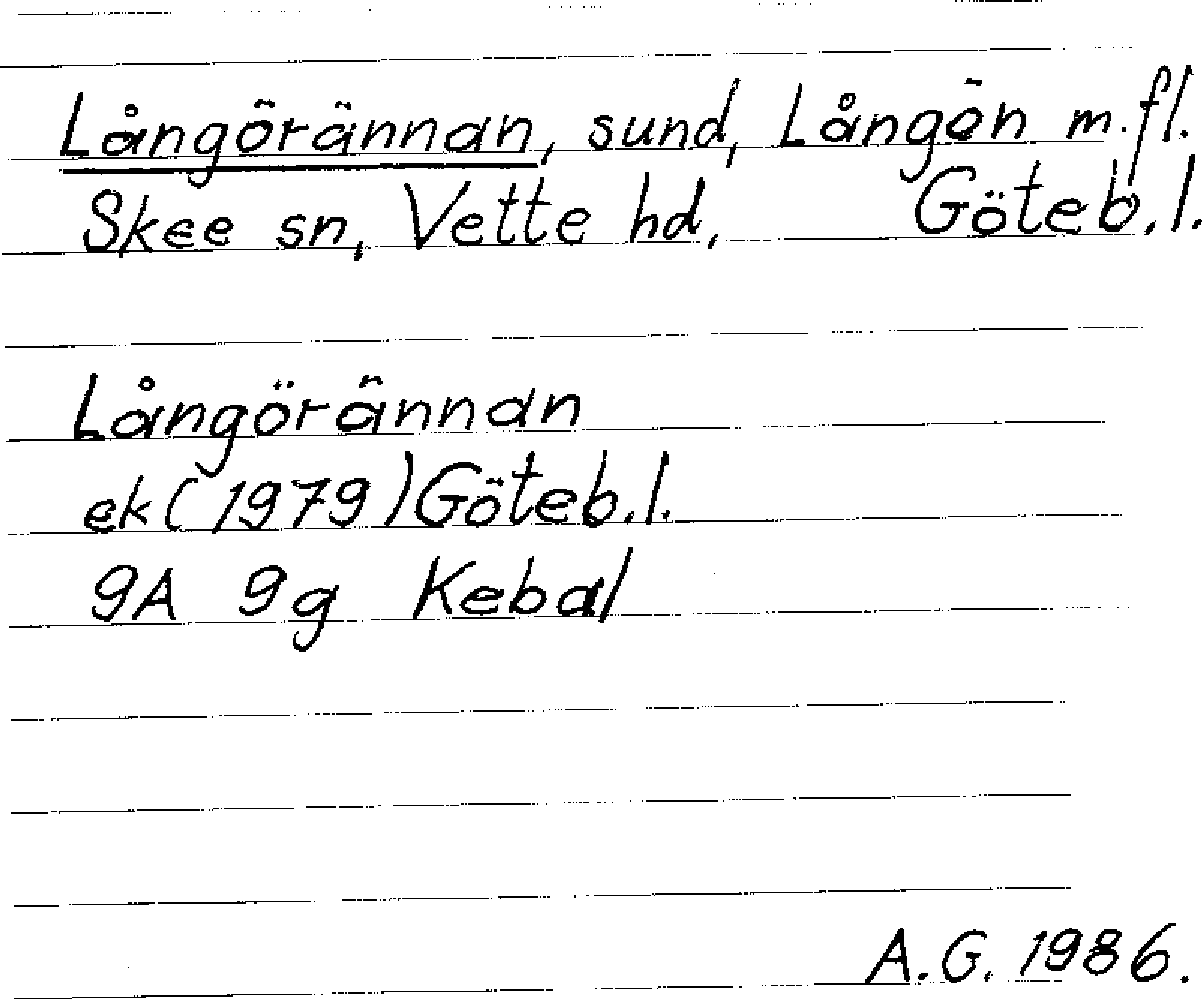 Långörännan, sund, Långön m.fl.
Skee sn, Vette hd, Göteb.l.
Långörännan
ek (1979) Göteb.l.
9A 9g Kebal
A.G. 1986.